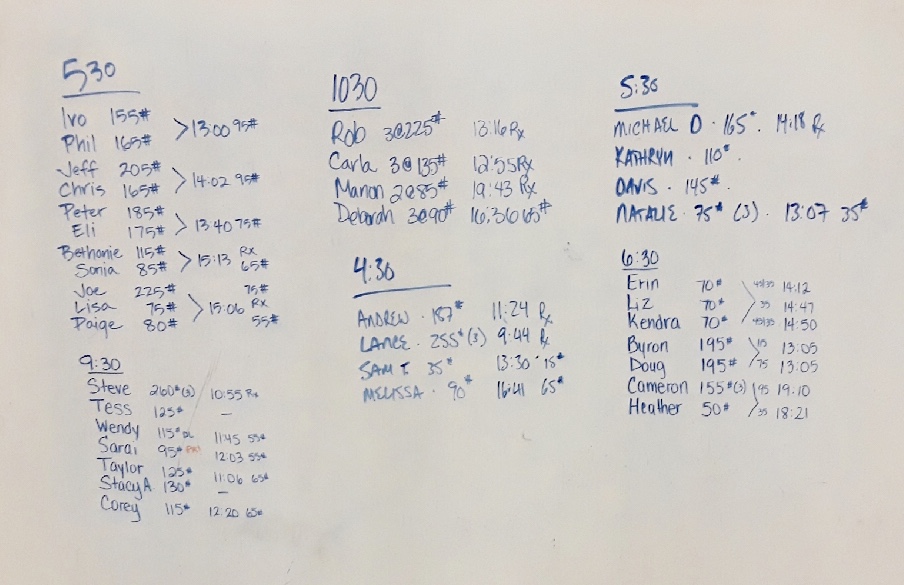 530
Ivo 155#
Phil 165# > 13:00 95#
Jeff 205#
Chris 165# > 14:02 95#
Peter 185#
Eli 175# > 13:40 75#
Bethanie 115# Rx
Sonia 85# > 15:13 65#
Joe 225# 75#
Lisa 75# > 15:06 Rx
Paige 80# 55#
9:30
Steve 260#(3) 10:55 Rx
Tess 125# –
Wendy 115# 11:45 55#
Sarai 95# 12:03 55#
Taylor 125# 11:06 65#
Stacy A 130# –
Corey 115# 12:20 65#
1030
Rob 3@225# 13:16 Rx
Carla 3@135# 12:55 Rx
Manon 2@85# 19:43 Rx
Deborah 3@90# 16:36 65#
4:30
ANDREW . 187# 11:24 Rx
LANCE . 255#(3) 9:44 Rx
SAM T. 35# 13:30
MELISSA . 90# 16:41 65#
5:30
MICHAEL D . 165#. 14:18 Rx
KATHRYN . 110#.
DAVIS . 145#.
NATALIE . 75# (3) . 13:07 35#
6:30
Erin 70# 45/35 14:12
Liz 70# 35 14:47
Kendra 70# 45/35 14:50
Byron 195# 13:05
Doug 195# 75 13:05
Cameron 155#(3) 95 19:10
Heather 50# 35 18:21